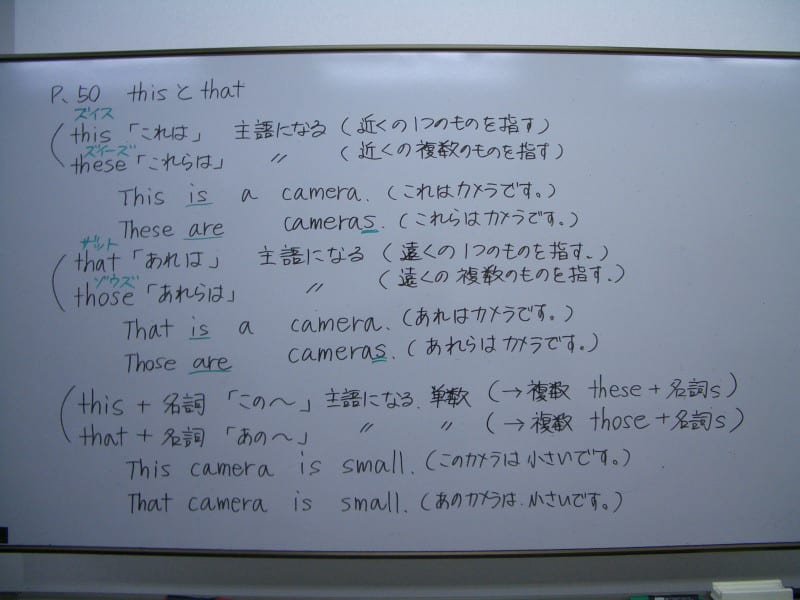 P. 50 thisとthat
ズイス
this「これは」 主語になる(近くの1つのものを指す)
ズイーズ
these「これらは」 〃 (近くの複数のものを指す)
This is a camera. (これはカメラです。)
These are cameras. (これらはカメラです。)
ザット
that「あれは」 主語になる(遠くの1つのものを指す.)
ゾウズ
those「あれらは」 〃 (遠くの複数のものを指す.)
That is a camera. (あれはカメラです。)
Those are cameras. (あれらはカメラです。)
this + 名詞 「この〜」 主語になる. 単数 (→ 複数 these + 名詞s)
that + 名詞 「あの〜」 〃 〃 (→ 複数 those + 名詞s)
This camera is small. (このカメラは小さいです。)
That camera is small. (あのカメラは.小さいです。)